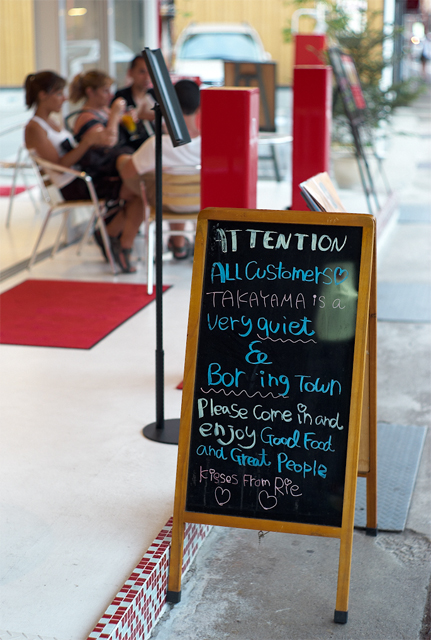 ATTENTION
ALL Customers
TAKAYAMA is a
very quiet
&
Boring Town
Please come in and
enjoy Good Food
and Great People
kisses From Rie